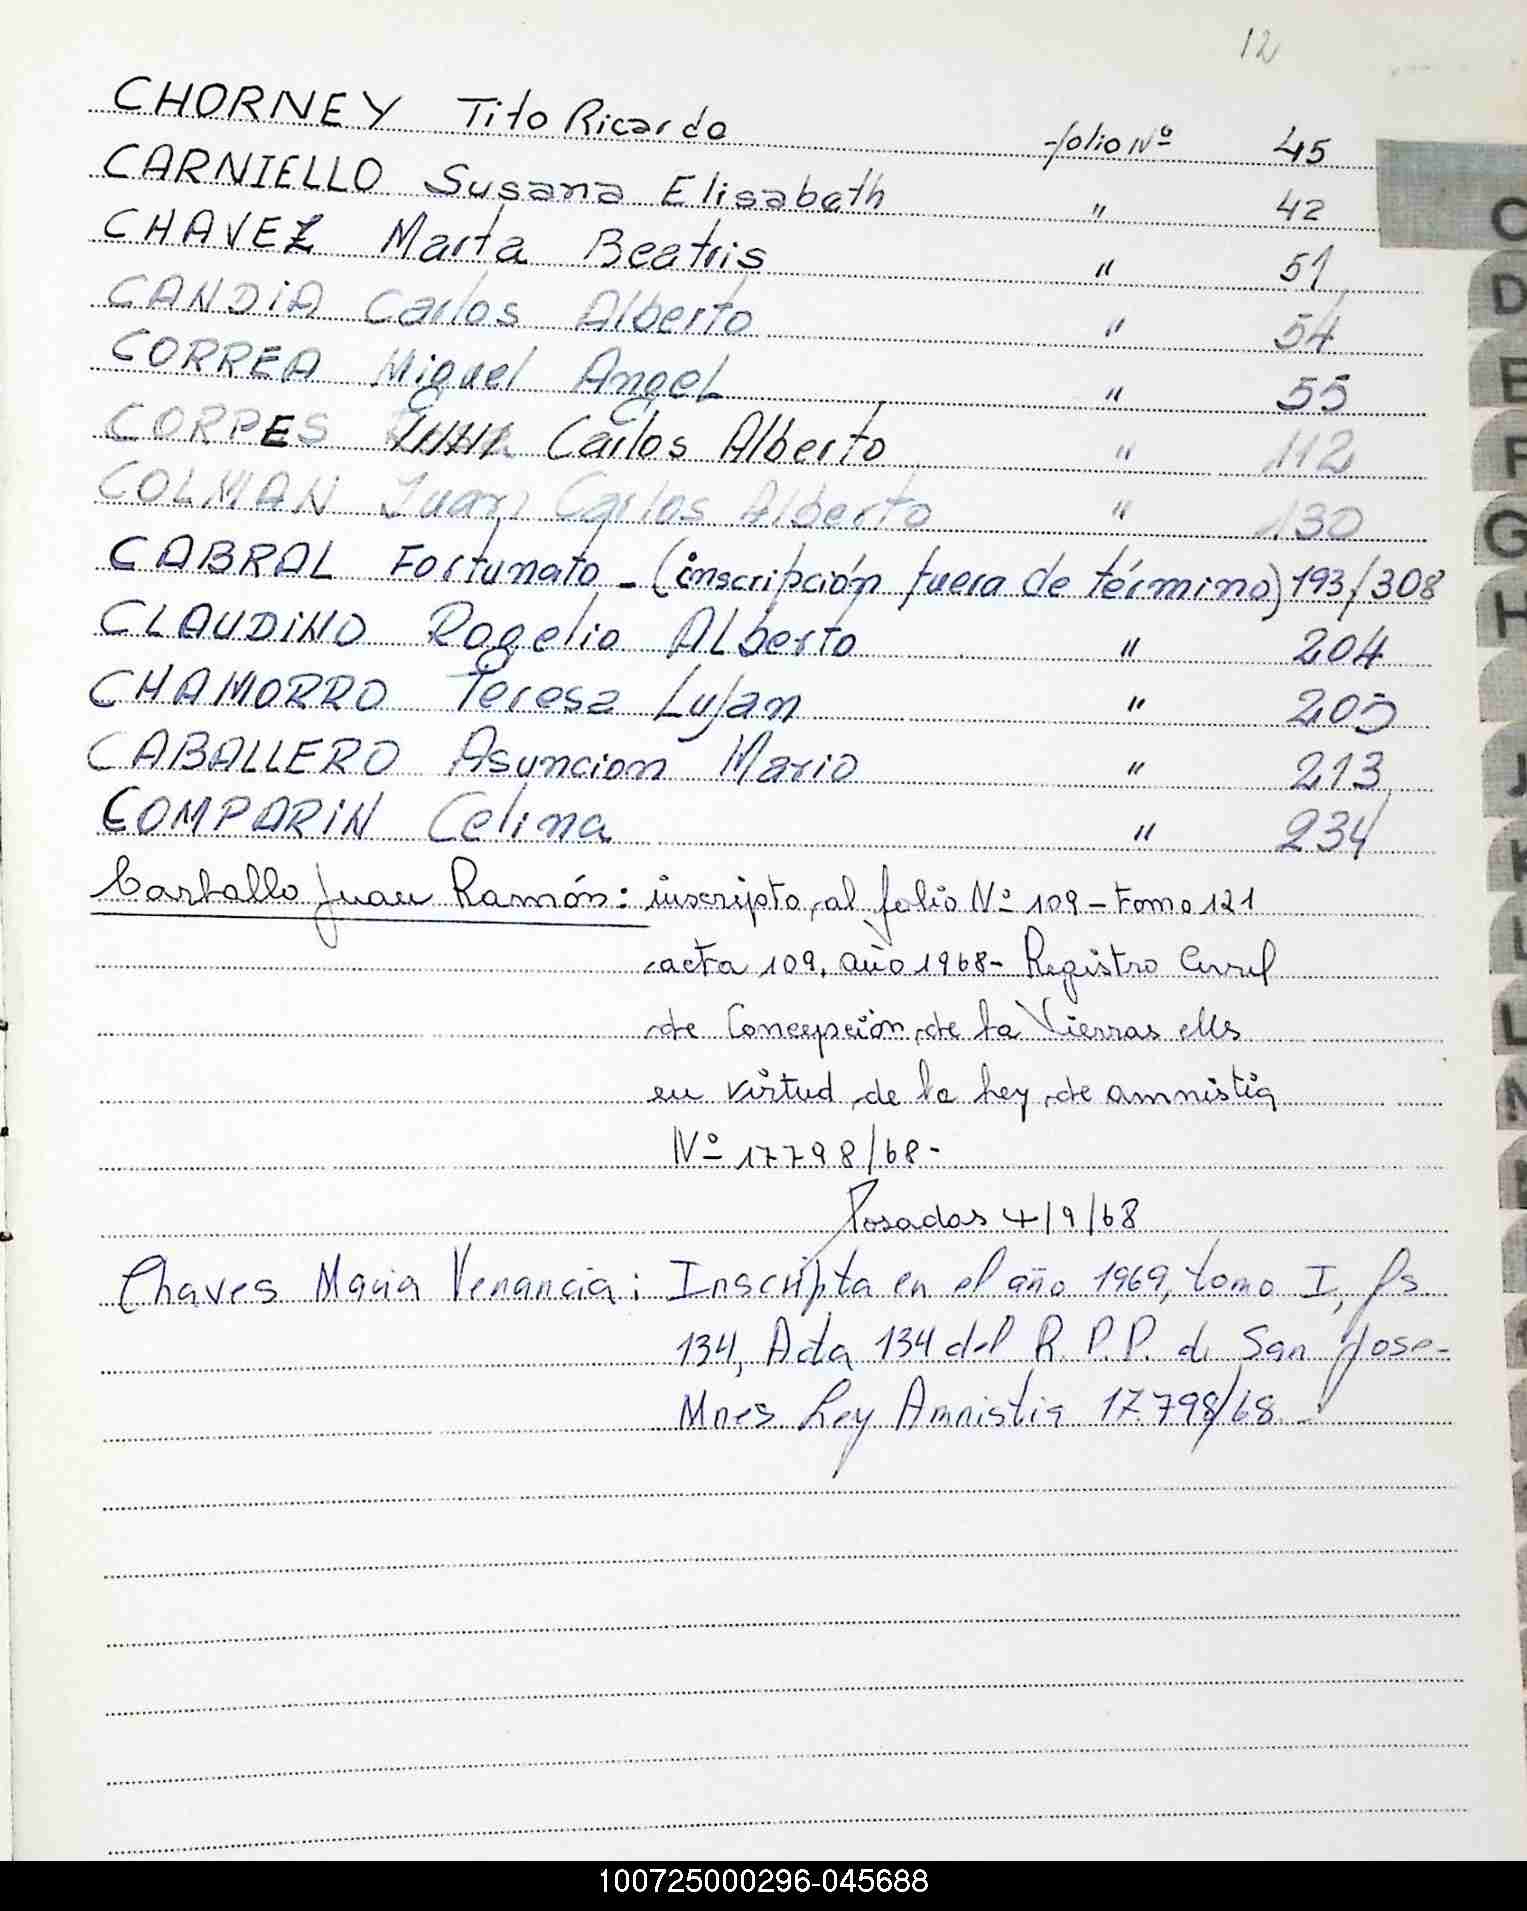 12
CHORNEY Tito Ricardo folio Nº 45
CARNIELLO Susana Elisabeth " 42
CHAVEZ Marta Beatris " 51
CANDIA Carlos Alberto " 54
CORREA Miguel Angel " 55
CORPES Carlos Alberto " 112
COLMAN Juan Carlos Alberto " 130
CABRAL Fortunato - (inscripción fuera de término) 193/308
CLAUDINO Rogelio Alberto " 204
CHAMORRO Teresa Lujan " 205
CABALLERO Asuncion Mario " 213
COMPARIN Celina " 234
Carballo Juan Ramón: inscripto al folio Nº 109 - tomo 121
acta 109, año 1968 - Registro Civil
de Concepción de la Sierras
en virtud de la ley de amnistia
Nº 17798/68-
Posadas 4/9/68
Chaves Maria Venancia: Inscripta en el año 1969, tomo I, fs
134, Acta 134 del R. P.P. de San Jose-
Mnes Ley Amnistia 17.798/68 -
C
D
E
F
G
H
J
K
L
100725000296-045688